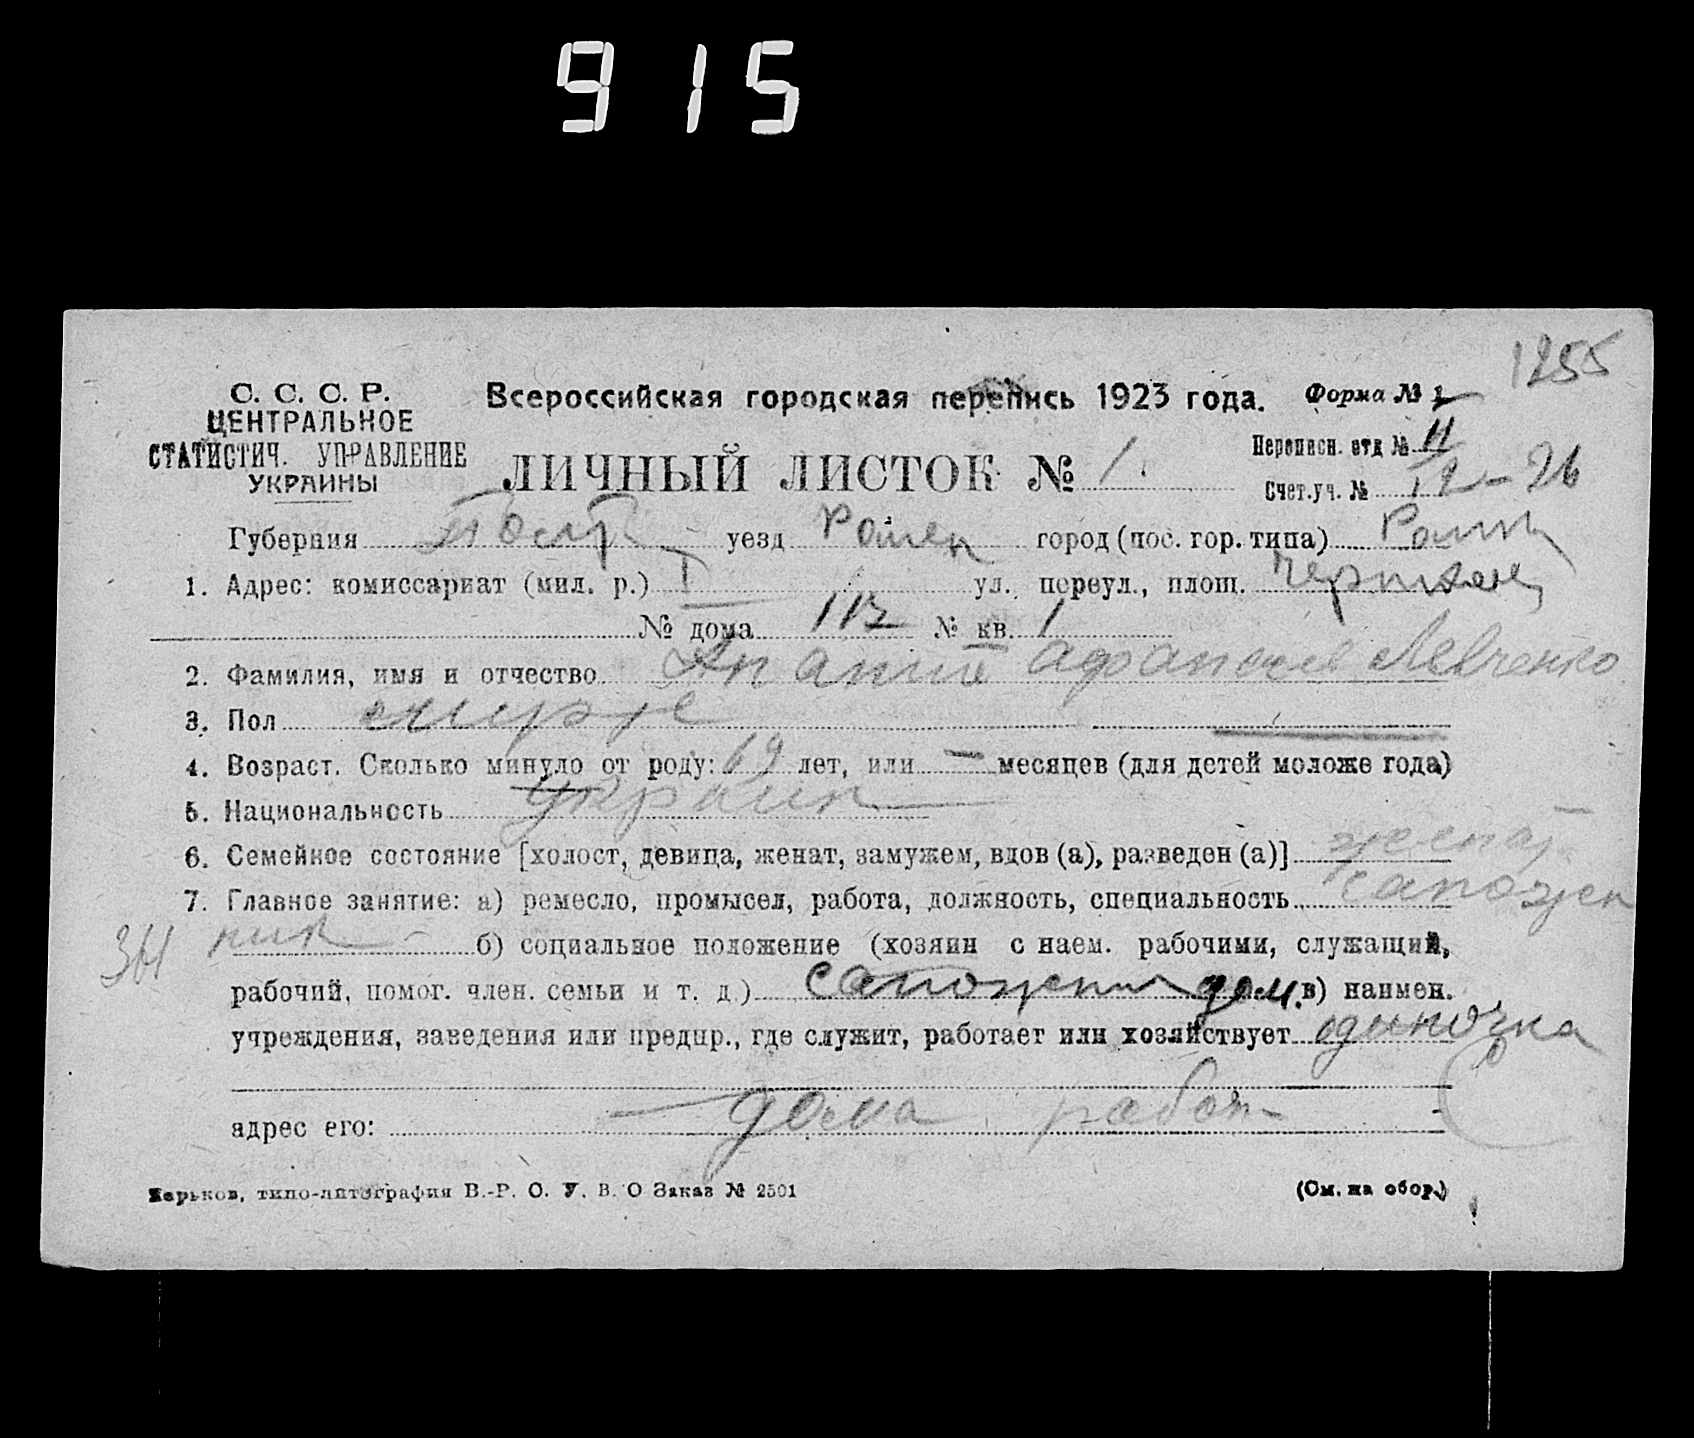 915
1255
С. С. С. Р.
ЦЕНТРАЛЬНОЕ
СТАТИСТИЧ. УПРАВЛЕНИЕ
УКРАИНЫ
Всероссийская городская перепись 1923 года. Форма № 1
ЛИЧНЫЙ ЛИСТОК № 1.
Переписн. отд № II
Счет.уч. № 12-26
Губерния Полт уезд Ромен город (пос. гор. типа) Ромны
1. Адрес: комиссариат (мил. р.) I ул. переул., площ.
№ дома 113 № кв. 1
2. Фамилия, имя и отчество Ананий Афанасиев Левченко
3. Пол мужс
4. Возраст. Сколько минуло от роду: 69 лет, или — месяцев (для детей моложе года)
5. Национальность украин
6. Семейное состояние [холост, девица, женат, замужем, вдов (а), разведен (а)] женат
7. Главное занятие: а) ремесло, промысел, работа, должность, специальность сапожн
ник - б) социальное положение (хозяин с наем. рабочими, служащий,
рабочий, помог. член. семьи и т. д.) сапожник дом. в) наимен.
учреждения, заведения или предпр., где служит, работает или хозяйствует одиночка
адрес его: дома работ
Харьков, типо-литография В.-Р. О. У. В. О Заказ № 2501
(См. на обор.)